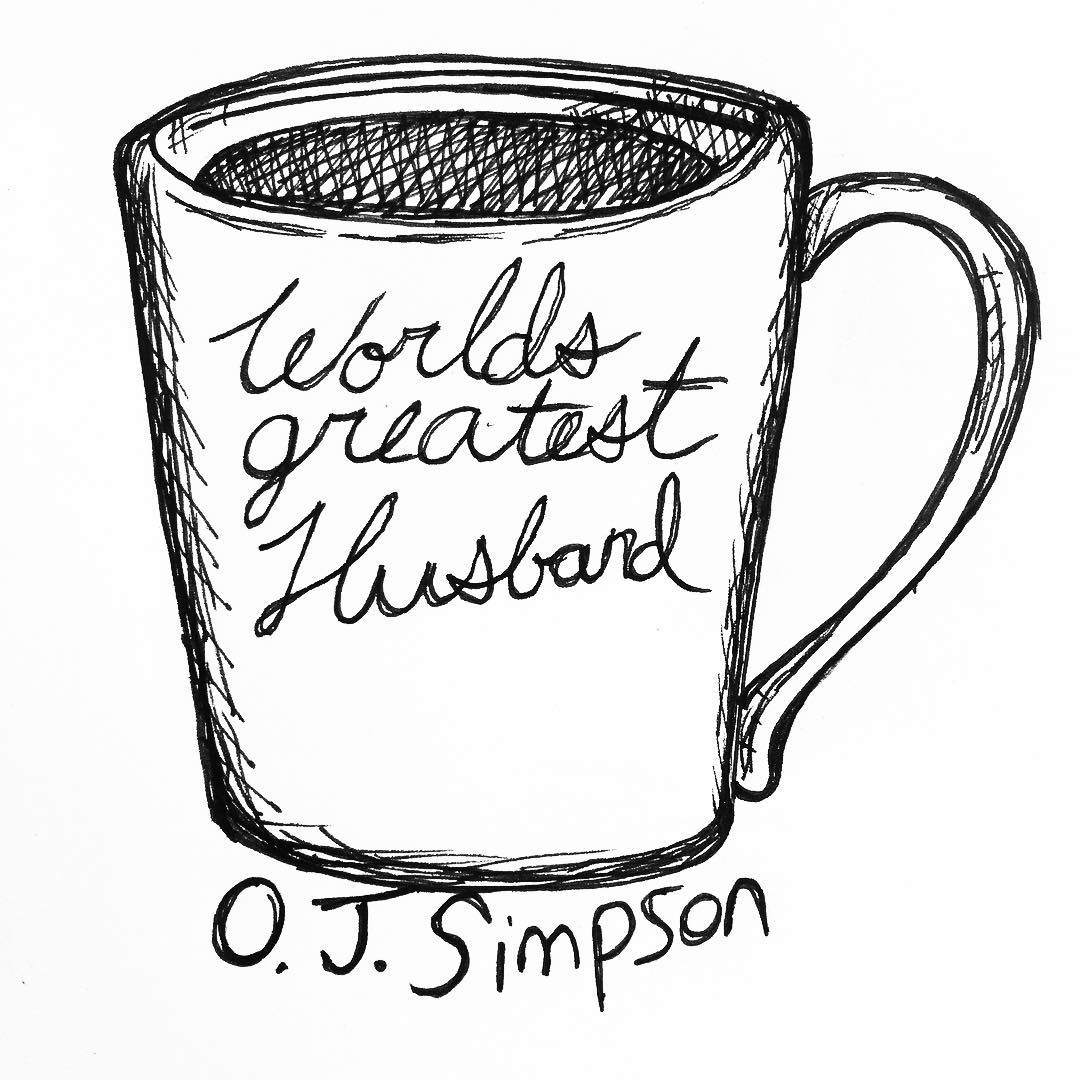 Worlds
greatest
Husband
O.J. Simpson